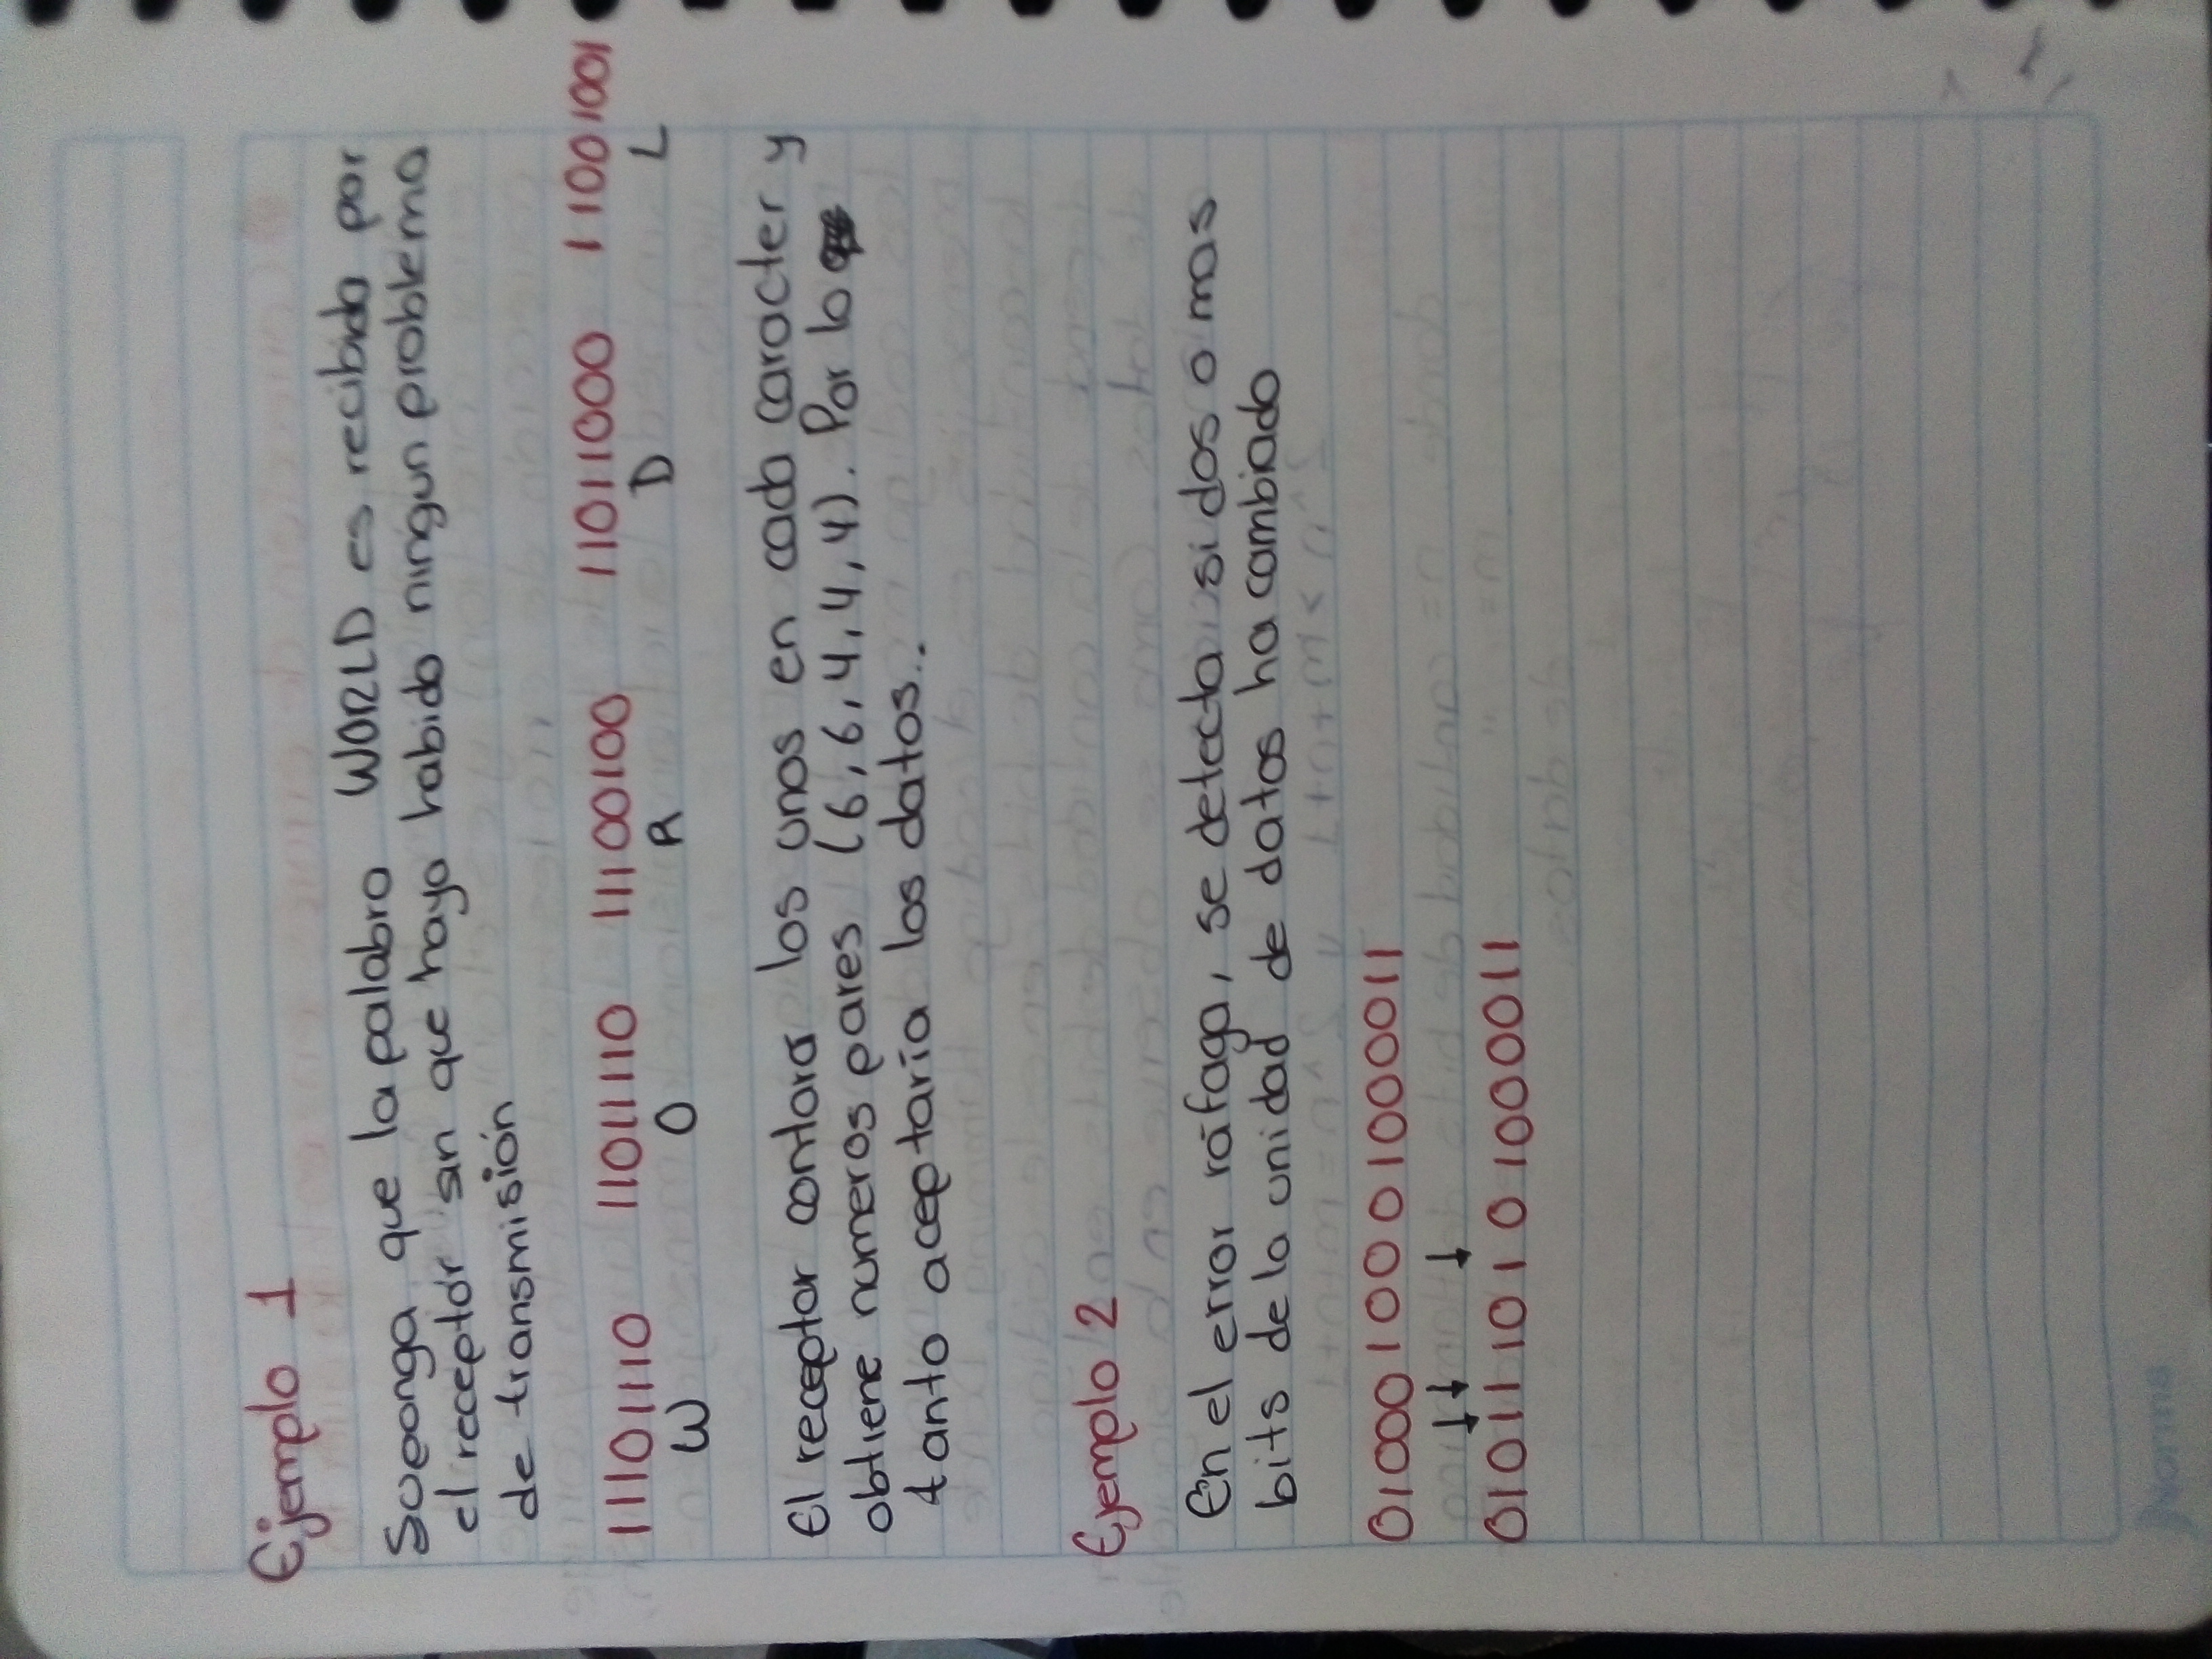 Ejemplo 1
Supeonga que la palabra WORLD es recibida por
el receptor sin que haya habido ningun problema
de transmisión
11101110 11011110 11100100 11011000 11001001
W O R D L
El receptor contara los unos en cada caracter y
obtiene numeros pares (6,6,4,4,4). Por lo
tanto aceptaría los datos..
Ejemplo 2
En el error ráfaga, se detecta si dos o mas
bits de la unidad de datos ha cambiado
0100010001000011
↓↓ ↓
0101110101000011